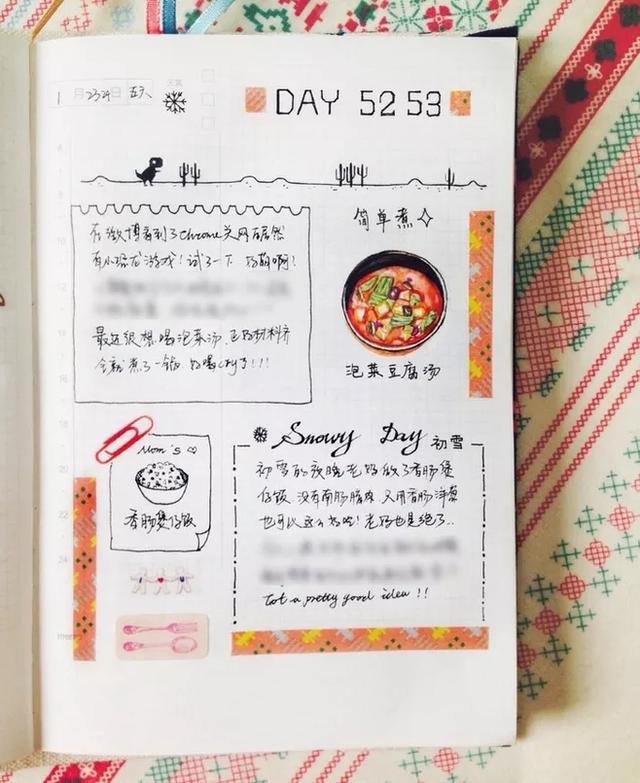 1月23 24日 五六
天气
DAY 52 53
在微博看到了chrome关网居然
有小恐龙游戏！试了一下 好萌啊！
最近很想喝泡菜汤 正好材料齐
全就煮了一锅 好喝cry了！！！
简单煮
泡菜豆腐汤
Mom's
香肠煲仔饭
Snowy Day 初雪
初雪的夜晚老妈做了香肠煲
仔饭 没有南肠腊肉 只用香肠洋葱
也可以这么好吃！老妈也是绝了..
Got a pretty good idea !!
memo